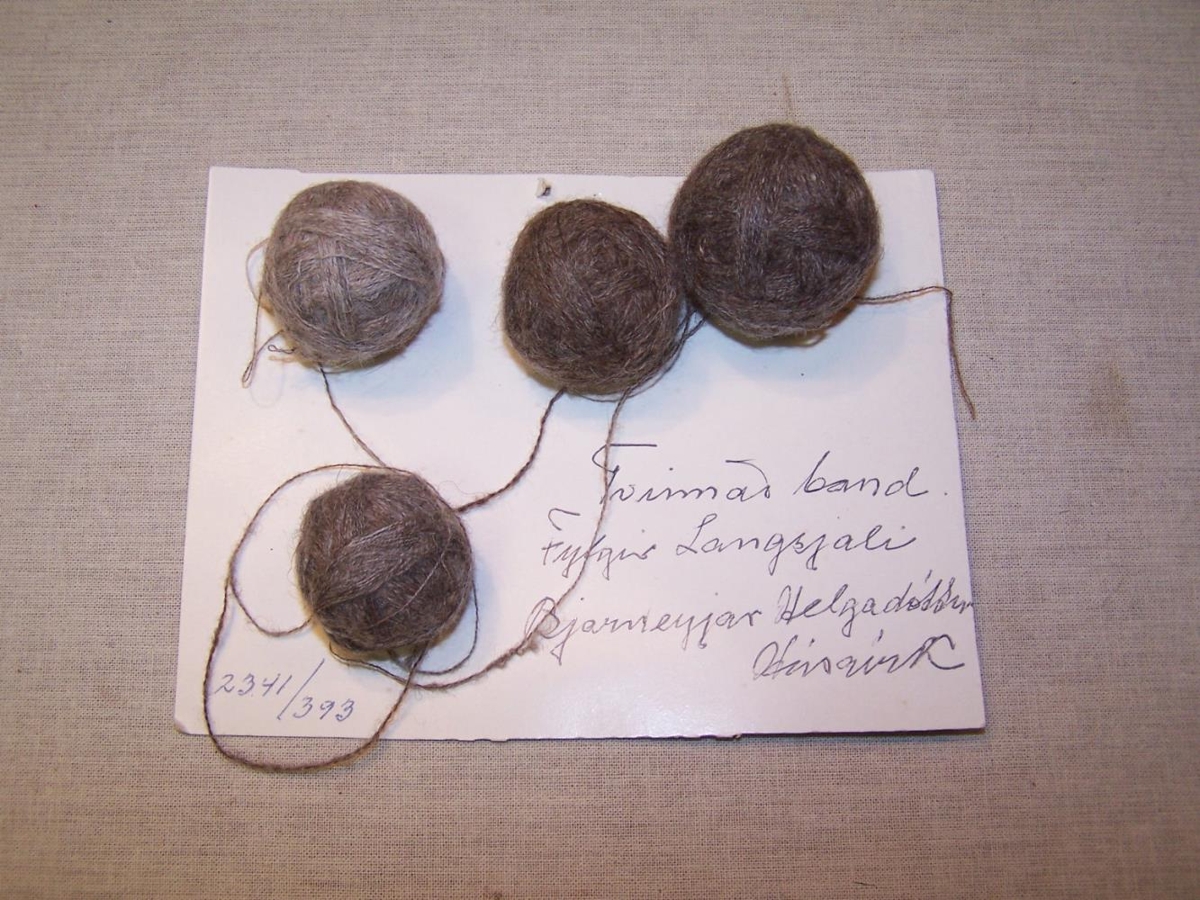 Tvinnað band.
Fylgir Langsjali
Bjarneyjar Helgadóttur
Húsavík
2341/393